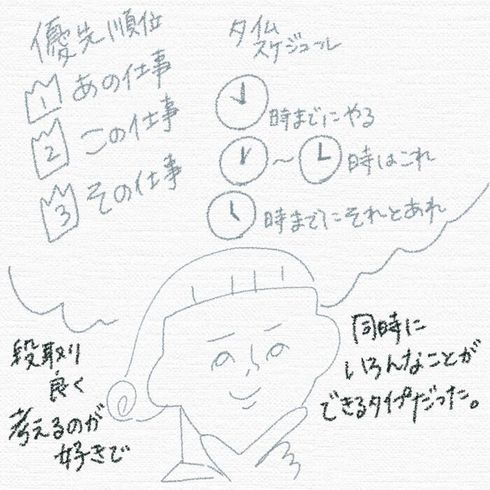 優先順位
1 あの仕事
2 この仕事
3 その仕事
タイム
スケジュール
時までにやる
〜 時はこれ
時までにそれとあれ
段取り
良く
考えるのが
好きで
同時に
いろんなことが
できるタイプだった。